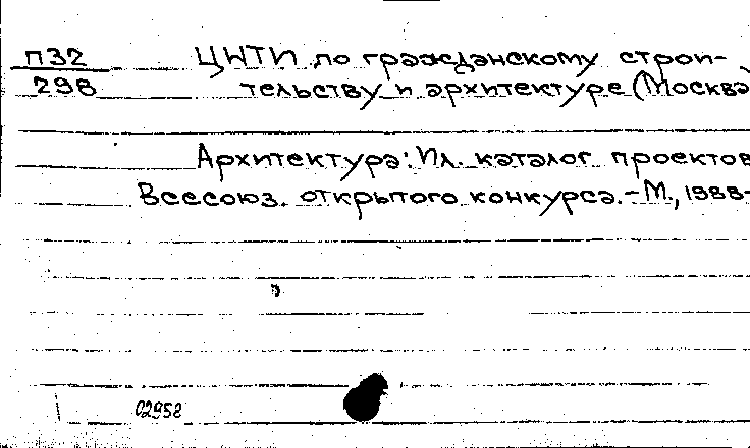 П32
298
ЦНТИ по гражданскому строи-
тельству и архитектуре (Москва)
Архитектура: Ил. каталог проектов
Всесоюз. открытого конкурса. – М., 1988-
02958